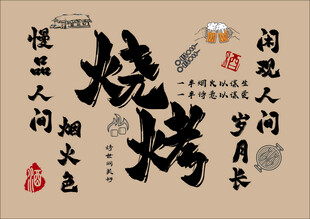 闲观人间
岁月长
酒
烧烤
一半烟火以谋生
一半诗意以谋爱
慢品人间
烟火色
酒